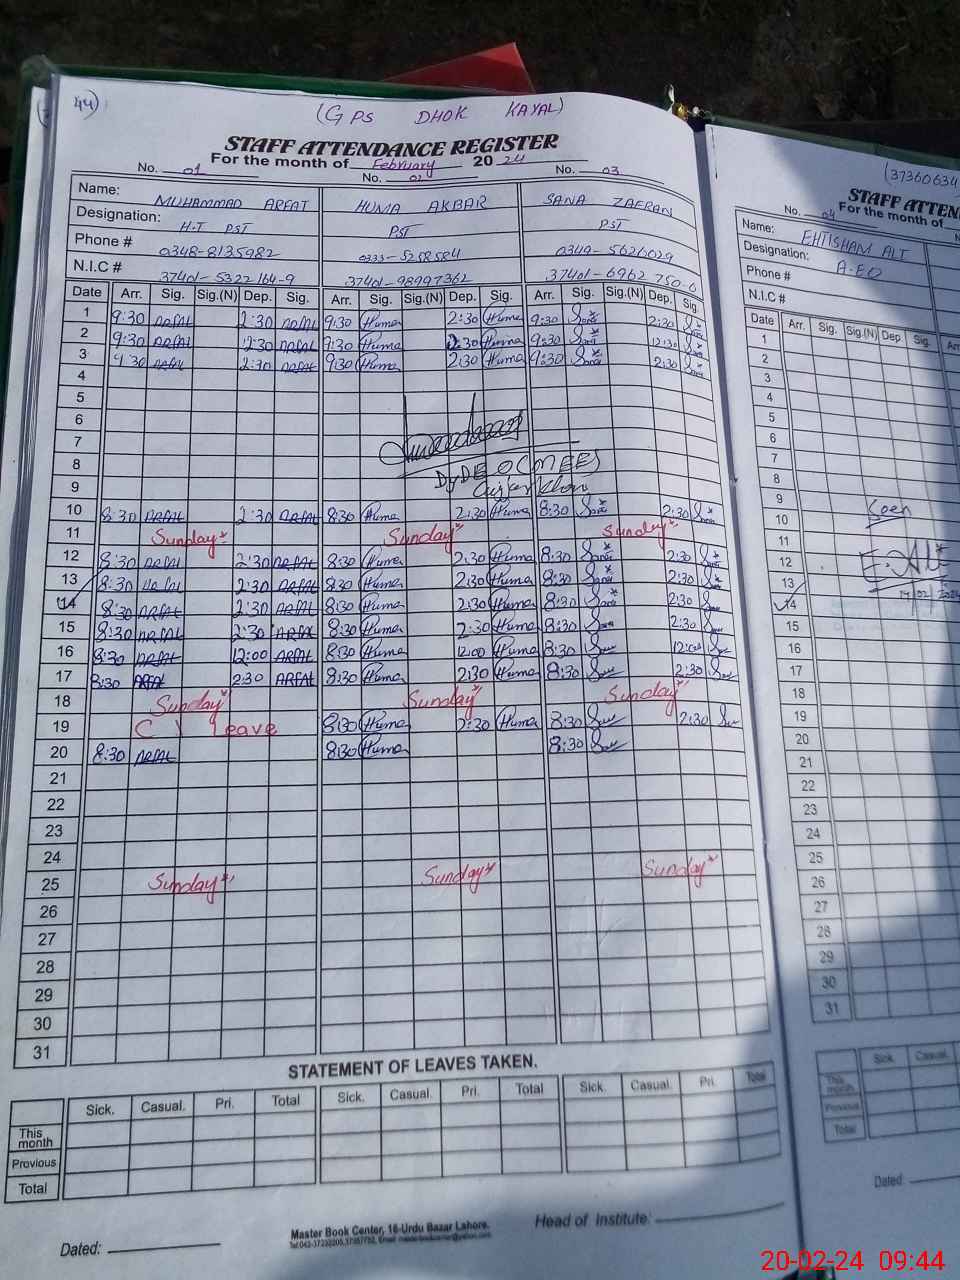 44
(GPS DHOK KAYAL)
STAFF ATTENDANCE REGISTER
For the month of February 2024
No. 01 No. 02 No. 03
Name: MUHAMMAD ARFAT HUMA AKBAR SANA ZAFRAN
Designation: H.T PST PST PST
Phone # 0348-8135982 0333-5258584 0349-5626029
N.I.C # 37401-5322164-9 37401-98997362 37401-6962750-6
Date Arr. Sig. Sig.(N) Dep. Sig. Arr. Sig. Sig.(N) Dep. Sig. Arr. Sig. Sig.(N) Dep. Sig.
1 9:30 ARFAT 2:30 ARFAT 9:30 Huma 2:30 Huma 9:30 Sana 2:30 Sana
2 9:30 ARFAT 12:30 ARFAT 9:30 Huma 12:30 Huma 9:30 Sana 12:30 Sana
3 9:30 ARFAT 2:30 ARFAT 9:30 Huma 2:30 Huma 9:30 Sana 2:30 Sana
4
5
6
7
8 DyDEO (MEE)
9
10 8:30 ARFAT 2:30 ARFAT 8:30 Huma 2:30 Huma 8:30 Sana 2:30 Sana
11 Sunday Sunday Sunday
12 8:30 ARFAT 2:30 ARFAT 8:30 Huma 2:30 Huma 8:30 Sana 2:30 Sana
13 8:30 ARFAT 2:30 ARFAT 8:30 Huma 2:30 Huma 8:30 Sana 2:30 Sana
14 8:30 ARFAT 2:30 ARFAT 8:30 Huma 2:30 Huma 8:30 Sana 2:30 Sana
15 8:30 ARFAT 2:30 ARFAT 8:30 Huma 2:30 Huma 8:30 Sana 2:30 Sana
16 8:30 ARFAT 12:00 ARFAT 8:30 Huma 12:00 Huma 8:30 12:00
17 8:30 ARFAT 2:30 ARFAT 8:30 Huma 2:30 Huma 8:30 2:30
18 Sunday Sunday Sunday
19 C/Leave 8:30 Huma 2:30 Huma 8:30 2:30
20 8:30 ARFAT 8:30 Huma 8:30
21
22
23
24
25 Sunday Sunday Sunday
26
27
28
29
30
31
STATEMENT OF LEAVES TAKEN.
Sick. Casual. Pri. Total Sick. Casual. Pri. Total Sick. Casual. Pri. Total
This month
Previous
Total
Dated:
Master Book Center, 16-Urdu Bazar Lahore.
Head of Institute:
(37360634
STAFF ATTEN
No. 04 For the month of
Name: EHTISHAM ALI
Designation: A-EO
Phone #
N.I.C #
Date Arr. Sig. Sig.(N) Dep Sig. Arr
1
2
3
4
5
6
7
8
9
10 Seen
11
12 E.Ali
13
14 14/02/2024
15
16
17
18
19
20
21
22
23
24
25
26
27
28
29
30
31
Sick Casual.
This month
Previous
Total
Dated:
20-02-24 09:44